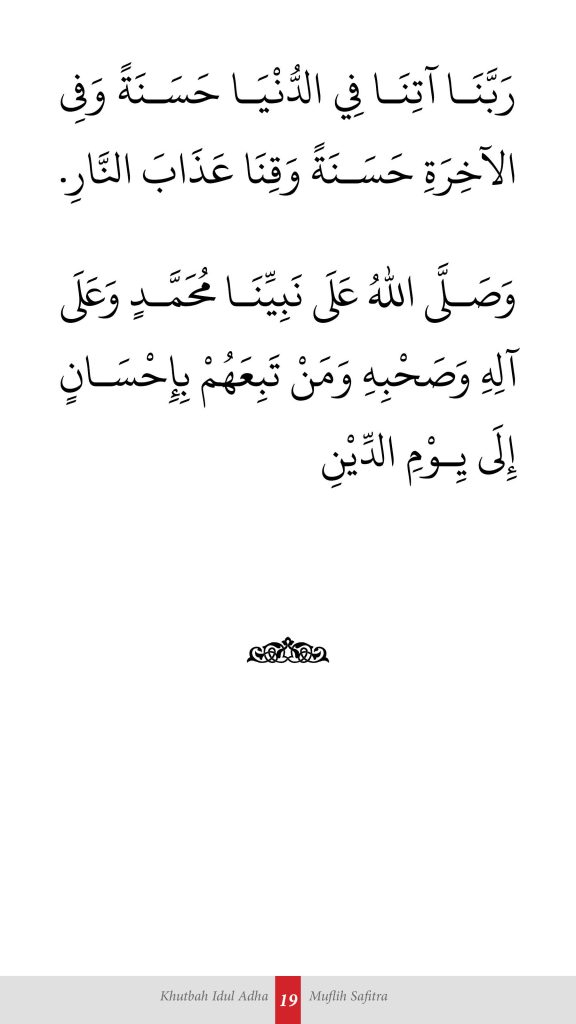 رَبَّنَــا آتِنَــا فِي الدُّنْيَــا حَسَــنَةً وَفِى
الآخِرَةِ حَسَــنَةً وَقِنَا عَذَابَ النَّارِ.
وَصَــلَّى اللهُ عَلَى نَبِيِّنَــا مُحَمَّــدٍ وَعَلَى
آلِهِ وَصَحْبِهِ وَمَنْ تَبِعَهُمْ بِإِحْسَــانٍ
إِلَى يِــوْمِ الدِّيْنِ
Khutbah Idul Adha 19 Muflih Safitra